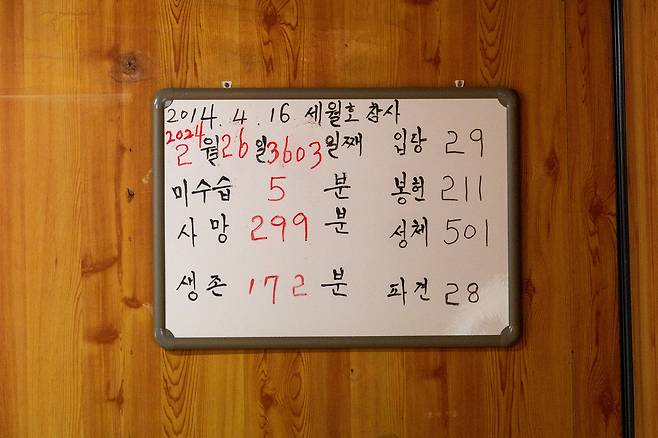 2014. 4. 16 세월호 참사
2024
2월26일3603일째 입당 29
미수습 5 분 봉헌 211
사망 299 분 성체 501
생존 172 분 파견 28